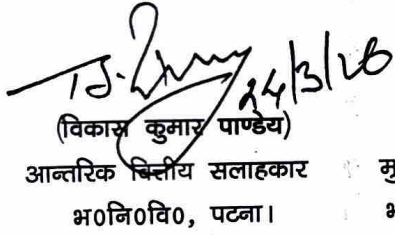 24/3/26
(विकास कुमार पाण्डेय)
आन्तरिक वित्तीय सलाहकार
भ०नि०वि०, पटना।